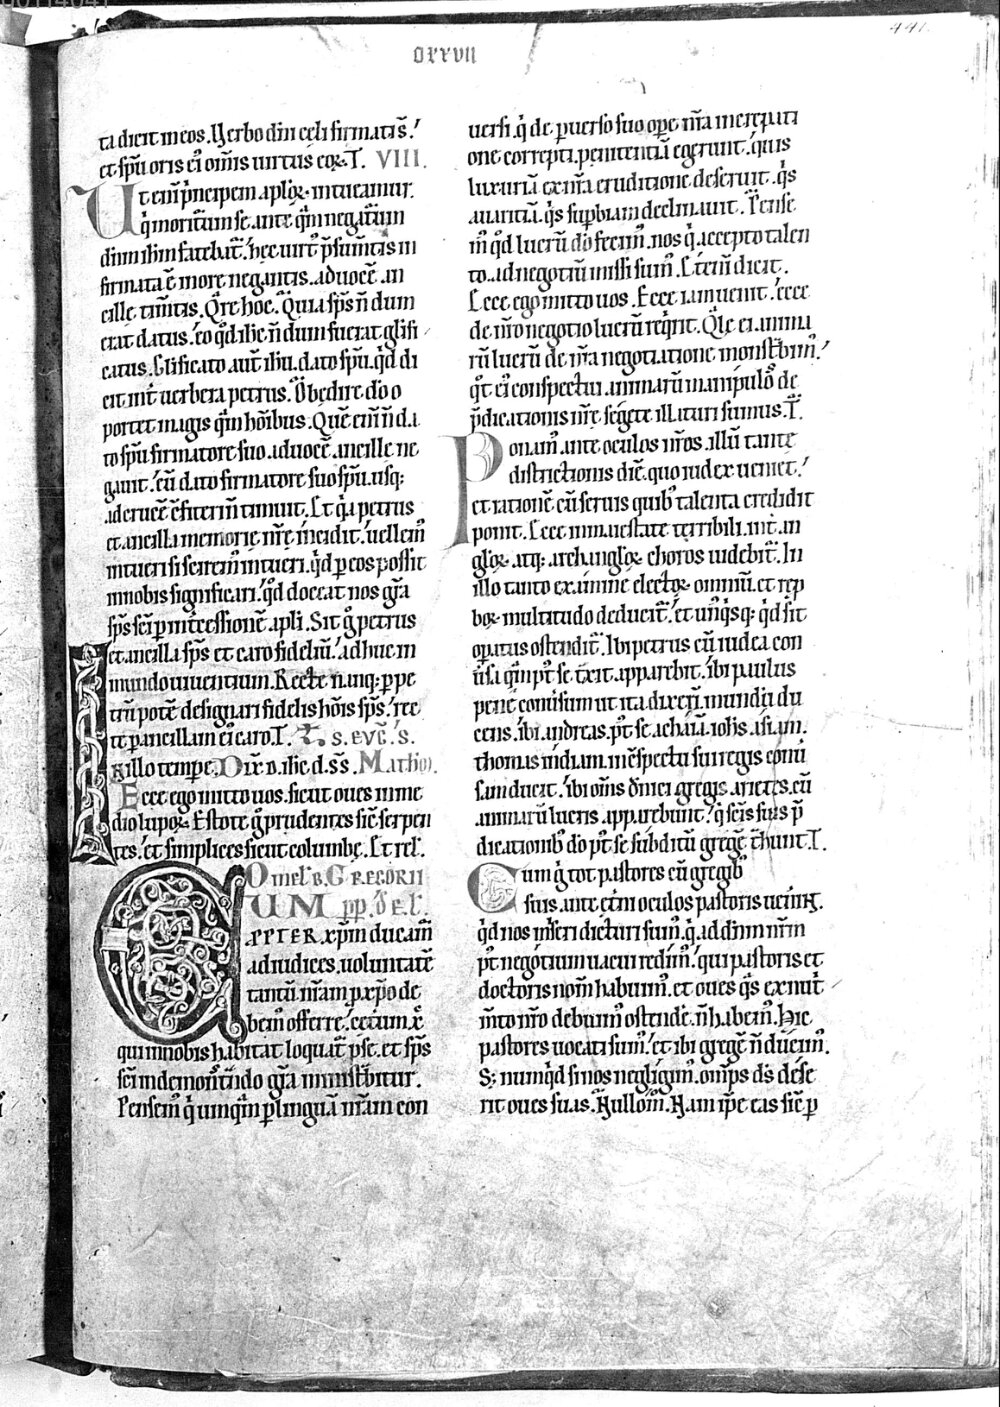 CXXVII
441
ta dicit meos. Verbo dñi celi firmati s̄.'
et sp̄u oris ei᷒ om̄is uirtus eoꝝ. I. VIII.
Ut eni᷒ p̱ncipem aplōꝝ intueamur.
q̇ moritu̅m se ante qᷓm negatu̅m
dñm ih̄m fatebat᷑. hec uirt᷒ p̄sum̄tis in
firmata ē more negantis. ad uocē an
cille tim̄tis. Qͣre hoc. Quia sp̄s ñ dum
erat datus.' eo qd̄ ihc̄ ñ dum fuerat gl̄ifi
catus. Gl̄ificato aut̄ ih̄u. dato sp̄u. qd̄ di
cit int̄ uerbera petrus. Obedire dō o
portet magis qᷓm hōibus. Quē eni᷒ ñ da
to sp̄u firmatore suo. ad uocē ancille ne
gauit.' cū dato firmatore suo sp̄u. usq;
ad crucē c̄fiteri ñ timuit. Et qͣ petrus
et ancilla memorie nr̄e incidit.' uellem᷒
intueri si scirem᷒ intueri. qd̄ p̱ eos possit
in nobis significari.' qd̄ doceat nos grā
sp̄s sc̄i p̱ int̄cessionē apl̄i. Sit g̊ petrus
et ancilla sp̄s et caro fidelīu.' adhuc in
mundo uiuentium. Recte nāq; p̱ pe
trū potē designari fidelis hōis sp̄s.' rec
te p̱ ancillam ei᷒ caro. I. T. S. EVĒ. S.
IN illo tempe. Dix̄. D. ihc̄ d. s̄s. Mathm̄.
Ecce ego mitto uos. sicut oues in me
dio lupoꝝ. Estote g̊ prudentes sic̄ serpen
tes.' et simplices sicut columbe. Et rel᷒.
Omel᷒. B. GREGORII
CUM PP. DE L᷒
APPTER xp̄m ducam̄
ad iudices. uoluntatē
tantū nr̄am p̱ xp̄o de
bem᷒ offerre.' cetum xc̄
qui in nobis habitat loquat᷑ p̱ se. et sp̄s
sc̄i in demonstando grā ministrabitur.
Pensem᷒ q̇ umqᷓm p̱ linguā nr̄am con
uersi. q̇ de p̱uerso suo ope nr̄a increpati
one correpti. penitentiā egerunt. quis
luxuriā ex nr̄a eruditione deseruit. qͥs
auaritiā. qͥs sup̱biam declinauit. Pense
m᷒ qd̄ lucrū dō fecim᷒. nos q̇ accepto talen
to ad negotiū missi sum᷒. Et eni᷒ dicit.
Ecce ego mitto uos. Ecce iam uenit.' ecce
de nr̄o negotio lucrū req̇rit. Qͣle ei animā
rū lucrū de nr̄a negotiatione monstrabim᷒.'
qͦt ei᷒ conspectui. animarū manipulos de
p̄dicationis nr̄e segete illaturi sumus. I.
Ponam᷒ ante oculos nr̄os. illū tante
districtionis diē. quo iudex ueniet.'
et rationē cū seruis quib᷒ talenta credidit
ponit. Ecce in maiestate terribili. int̄ an
gloꝝ atq; archangloꝝ choros uidebit᷑. In
illo tanto examine electoꝝ omniū. et rep
boꝝ multitudo deducit᷑.' et un᷒qͥsq; qd̄ sit
opatus ostendit᷑. Ibi petrus cū iudea con
uisa qᷓm p᷒t se t̄xit apparebit. ibi paulus
pene conuisum ut ita dixerī mundū du
cens. ibi andreas p᷒t se achaiā. iohs̄ asiam.
thomas indiam. in c̄spectu sui regis conū
sam ducet.' ibi om̄s dn̄ici gregis arietes. cū
animarū lucris apparebunt.' q̇ sc̄is suis p̄
dicationib᷒ dō p᷒t se subditū gregē t̄hunt. I.
Cum g̊ tot pastores cū gregib᷒
suis. ante et̄ni oculos pastoris ueniēt.
qd̄ nos miseri dicturi sum᷒. q̇ ad dñm nr̄m
p᷒t negotium uacui redim᷒.' qui pastoris et
doctoris nom̄ habuim᷒. et oues qͣs ex nut
mto nr̄o debeam᷒ ostende. ñ habem᷒. Hic
pastores uocati sum᷒.' et ibi gregē ñ ducim᷒.
S; numqd̄ si nos negligim᷒. omp̄s ds̄ dese
rit oues suas. Nullom̄. Nam ip̄e eas sic̄ p̱